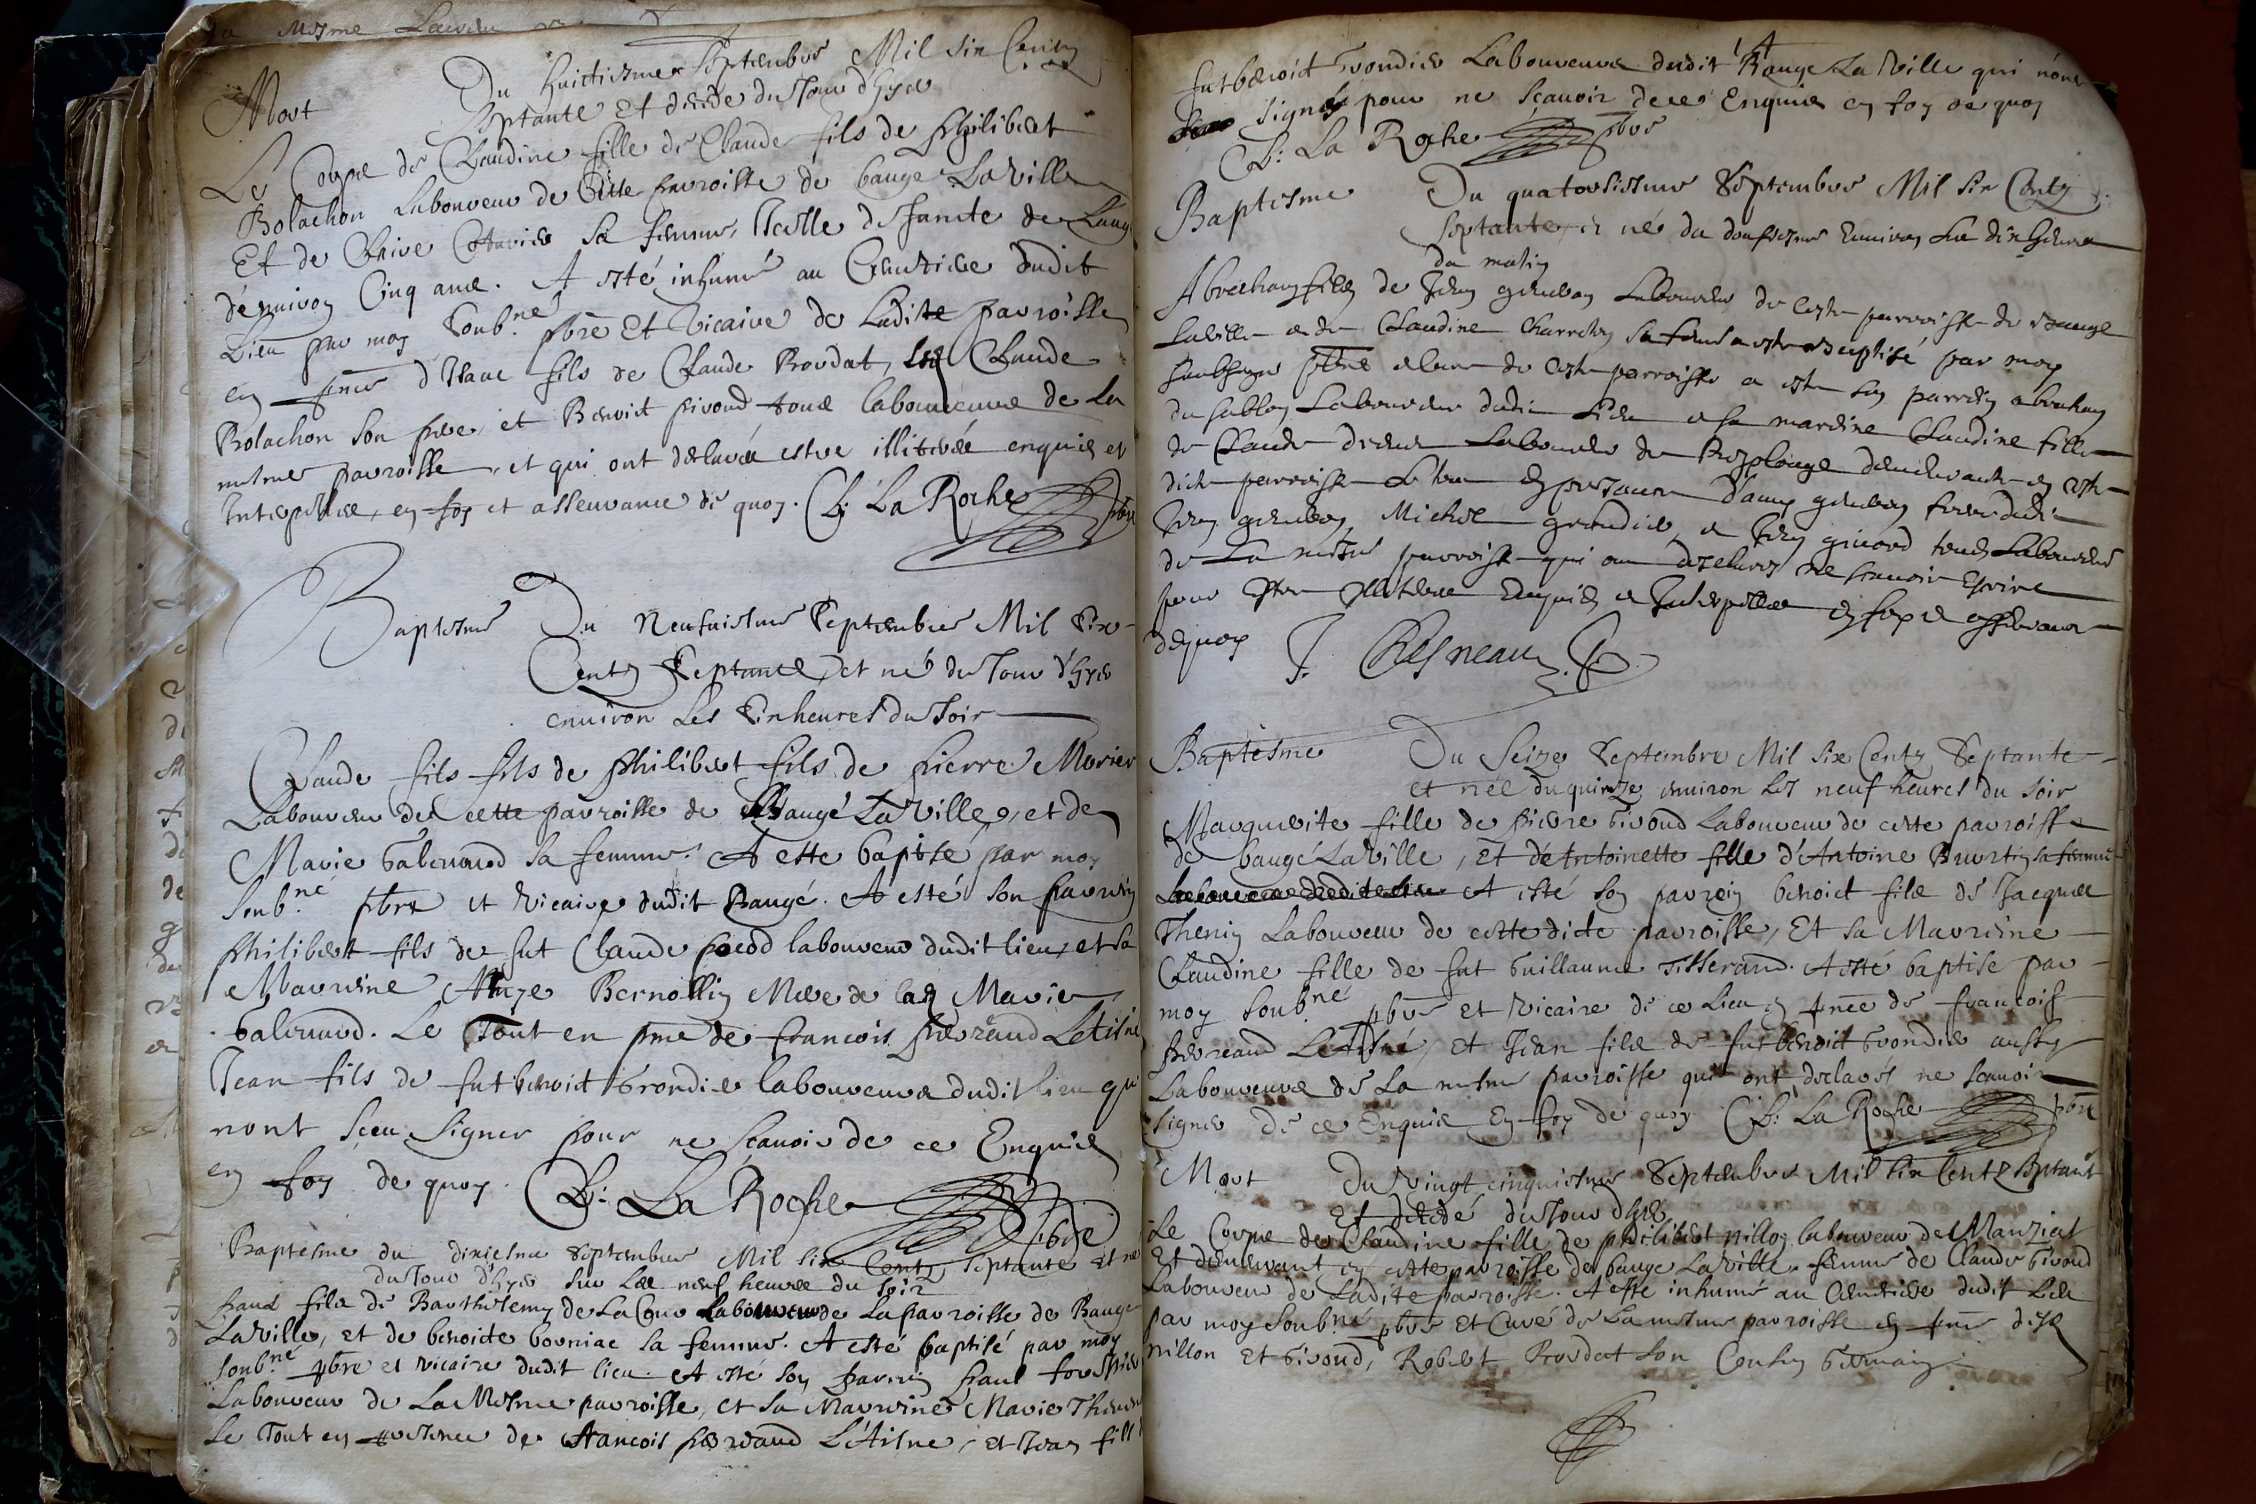 la mesme
Mort
Du huictiesme Septembre Mil Six Centz
Septante Et decede du Jour d'hyer
Le Corps de Claudine fille de Claude fils de Philibert
Bolachon Laboureur de Cette parroisse de baugé La Ville
Et de Claire sa femme, Icelle deffunte de Laage
d'environ Cinq ans. A esté inhumé au Cemetiere dudit
Lieu par moy Soub.né pbre Et Vicaire de Ladite parroisse
en pnce d'Isaac fils de Claude Bordat, Led Claude
Bolachon son pere, et Benoit pivond tous laboureurs de La
mesme parroisse, et qui ont declaré estre illiterés enquis et
Interpellés, en foy et asseurance de quoy. Cl: La Roche pbre
Baptesme
Du Neufviesme Septembre Mil Six
Centz Septante, et né du Jour d'hyer
environ les Six heures du Soir
Claude fils fils de Philibert fils de Pierre Morier
Laboureur de cette parroisse de Baugé La Ville, et de
Marie Galurnaud sa femme. A esté baptisé par moy
Soub.né pbre et Vicaire dudit Baugé. A esté son parrein
Philibert fils de fut Claude laboureur dudit lieu, et sa
Marreine Bernollin Mere de lad Marie
Galurnaud. Le Tout en pnce de francois Perraud Letisne
Jean fils de fut benoict Grondier laboureurs dudit lieu qui
n'ont sceu signer pour ne scavoir de ce Enquis
en foy de quoy. Cl: La Roche pbre
Baptesme du dixiesme Septembre Mil Six Centz Septante Et né
du Jour d'hyer sur les neuf heures du soir
Paul fils de Barthelemy de La Cour Laboureur de La parroisse de Baugé
La Ville, et de benoicte bourniac sa femme. A esté baptisé par moy
Soub.né pbre et vicaire dudit lieu. A esté son parrein Paul
Laboureur de La Mesme parroisse, et sa Marreine Marie
Le Tout en presence de francois Perraud L'Aisne, et Jean fils
fut benoict Grondier Laboureurs dudit Baugé La Ville qui n'ont
signés pour ne sçavoir de ce Enquis en foy de quoy
Cl: La Roche pbre
Baptesme
Du quatorsiesme Septembre Mil Six Centz
Septante, et né du dousiesme Environ Les dix heures
du matin
Abraham fils de Jean Laboureur de ceste parroisse de Bauge
La Ville et de Claudine Charreton sa femme a esté Baptisé par moy
Soubsigné pbre et Curé de ceste parroisse a esté son parrein abraham
du Sablon Laboureur dudit Lieu et sa mareine Claudine fille
de Claude Laboureur de Replonge demeurante en ceste
dicte parroisse Le tout en presence
Jean Michel Grondier, et Jean givord tous Laboureurs
de La mesme parroisse qui ont declarés ne scavoir Escrire
pour estre Illiteres Enquis et Interpelles en foy et asseurance
de quoy J. Chesneau
Baptesme
Du Seize Septembre Mil Six Centz Septante
et née du quinze environ les neuf heures du Soir
Marguerite fille de Pierre Givond Laboureur de cette parroisse
de baugé La Ville, Et de Antoinette fille d'Antoine Burtin sa femme
A esté son parrein benoict fils de Jacques
Thenin Laboureur de cette dicte parroisse, Et sa Marreine
Claudine fille de fut Guillaume Tisserand. A esté baptisé par
moy Soub.né pbre et Vicaire de ce Lieu en pnce de francois
Perreaud L'Aisné, Et Jean fils de fut benoict Grondier aussy
Laboureurs de La mesme parroisse qui ont declarés ne scavoir
signer de ce Enquis En foy de quoy Cl: La Roche pbre
Mort
Du Vingt cinquiesme Septembre Mil Six Centz Septante
Et decedé du Jour d'hyer
Le Corps de Claudine fille de philibert Nillon laboureur de Manziat
Et demeurant en cette parroisse de bauge La Ville femme de Claude Givond
Laboureur de Ladite parroisse. A esté inhumé au Cemetiere dudit Lieu
par moy Soub.né pbre et Curé de La mesme parroisse en pnce desd
Nillon Et Givond, Robert Bordat son Cousin Germain